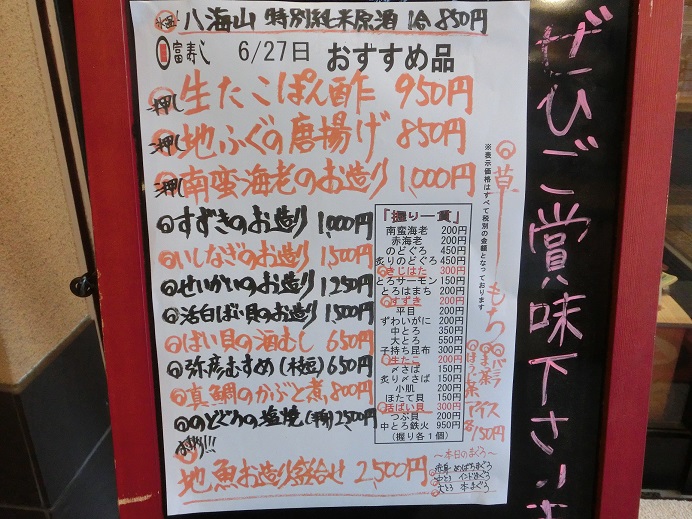 八海山 特別純米原酒 冷 850円
富寿し 6/27日 おすすめ品
押し 生たこぽん酢 950円
押し 地ふぐの唐揚げ 850円
押し 南蛮海老のお造り 1,000円
すずきのお造り 1,000円
いしなぎのお造り 1,500円
せいかいのお造り 1,250円
活白ばい貝のお造り 1,500円
ばい貝の酒むし 650円
弥彦むすめ(枝豆) 650円
真鯛のかぶと煮 800円
のどぐろの塩焼(半身) 2,500円
地魚お造り盛合せ 2,500円
「握り一貫」
南蛮海老 200円
赤海老 200円
のどぐろ 450円
炙りのどぐろ 450円
きじはた 300円
とろサーモン 150円
とろはまち 200円
すずき 200円
平目 200円
ずわいがに 200円
中とろ 350円
大とろ 550円
子持ち昆布 300円
生たこ 200円
〆さば 150円
炙り〆さば 150円
小肌 200円
ほたて貝 150円
活ばい貝 300円
つぶ貝 200円
中とろ鉄火 950円
(握り各1個)
※表示価格はすべて税別の金額となっております
草もち
バニラ
抹茶
ほうじ茶
アイス
各150円
〜本日のまぐろ〜
赤身 めばちまぐろ
中とろ インドまぐろ
大とろ 本まぐろ
ぜひご賞味下さいませ